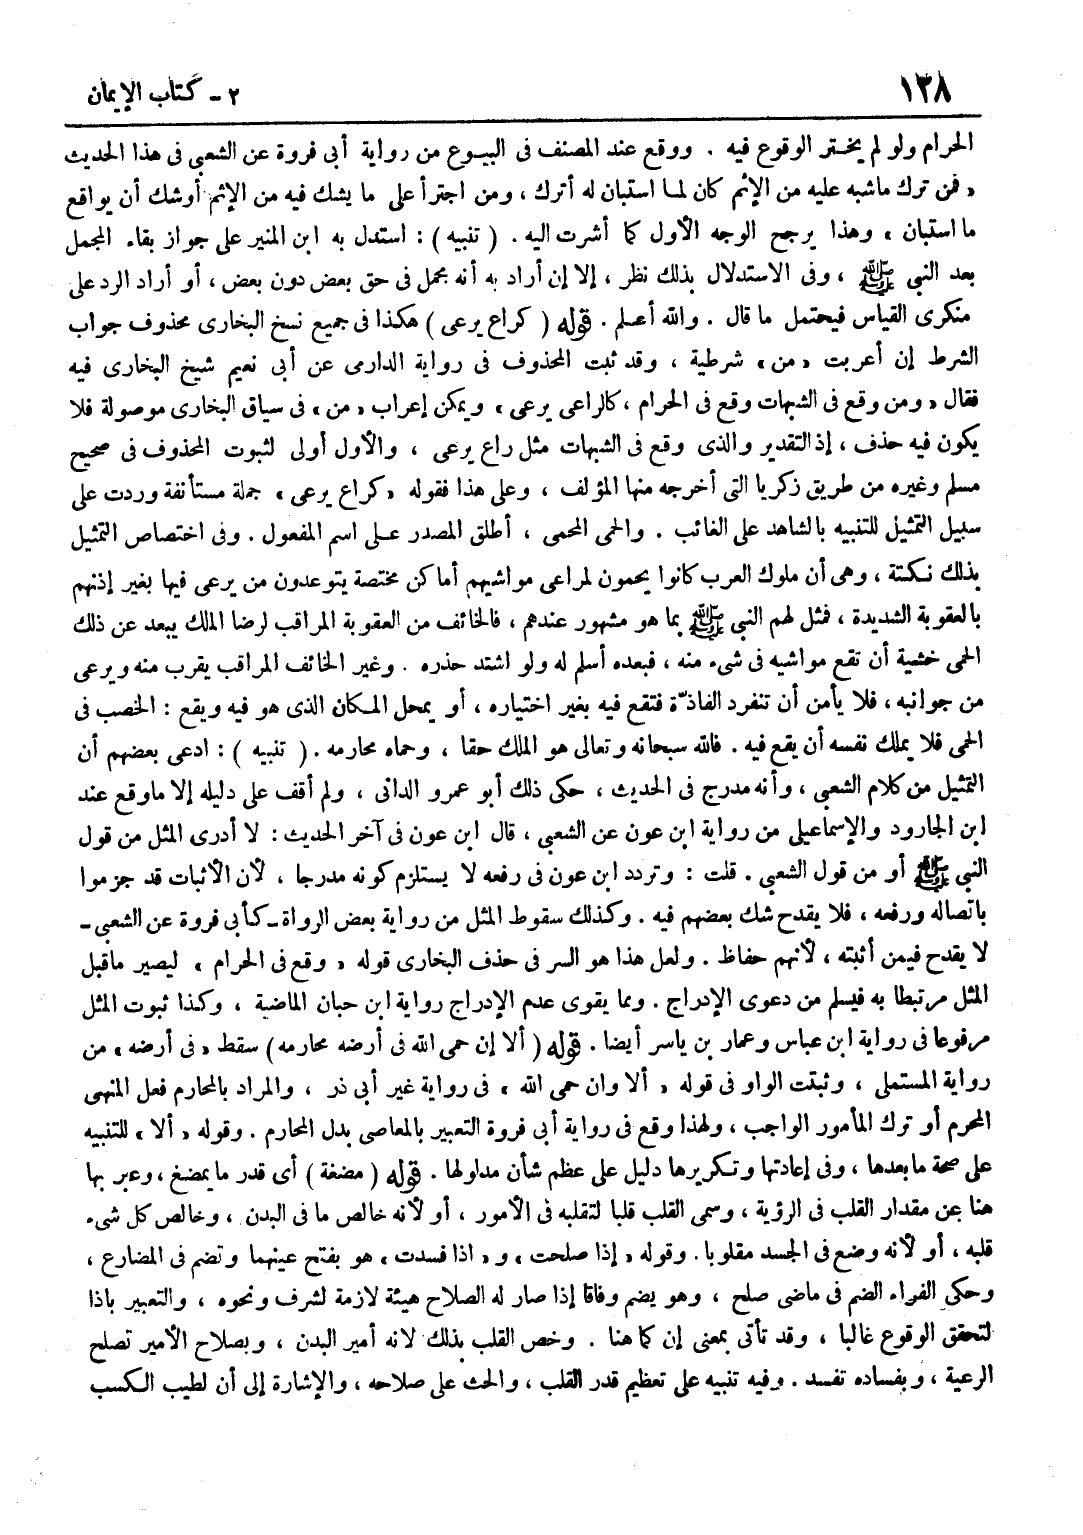 ١٢٨
٢ - كتاب الإيمان
الحرام ولو لم يختر الوقوع فيه . ووقع عند المصنف فى البيوع من رواية أبى فروة عن الشعبى فى هذا الحديث
« فمن ترك ماشبه عليه من الإثم كان لما استبان له أترك ، ومن اجترأ على ما يشك فيه من الإثم أوشك أن يواقع
ما استبان » وهذا يرجح الوجه الأول كما أشرت اليه . ( تنبيه ) : استدل به ابن المنير على جواز بقاء المجمل
بعد النبى ﷺ ، وفى الاستدلال بذلك نظر ، إلا إن أراد به أنه مجمل فى حق بعض دون بعض ، أو أراد الرد على
منكرى القياس فيحتمل ما قال . والله أعلم . قوله ( كراع يرعى ) هكذا فى جميع نسخ البخارى محذوف جواب
الشرط إن أعربت « من » شرطية ، وقد ثبت المحذوف فى رواية الدارمى عن أبى نعيم شيخ البخارى فيه
فقال « ومن وقع فى الشبهات وقع فى الحرام ، كالراعى يرعى » ويمكن إعراب « من » فى سياق البخارى موصولة فلا
يكون فيه حذف ، إذ التقدير والذى وقع فى الشبهات مثل راع يرعى ، والأول أولى لثبوت المحذوف فى صحيح
مسلم وغيره من طريق زكريا التى أخرجه منها المؤلف ، وعلى هذا فقوله « كراع يرعى » جملة مستأنفة وردت على
سبيل التمثيل للتنبيه بالشاهد على الغائب . والحمى المحمى ، أطلق المصدر على اسم المفعول . وفى اختصاص التمثيل
بذلك نكتة ، وهى أن ملوك العرب كانوا يحمون لمراعى مواشيهم أماكن مختصة يتوعدون من يرعى فيها بغير إذنهم
بالعقوبة الشديدة ، فمثل لهم النبى ﷺ بما هو مشهور عندهم ، فالخائف من العقوبة المراقب لرضا الملك يبعد عن ذلك
الحمى خشية أن تقع مواشيه فى شىء منه ، فبعده أسلم له ولو اشتد حذره . وغير الخائف المراقب يقرب منه ويرعى
من جوانبه ، فلا يأمن أن تنفرد الفاذّة فتقع فيه بغير اختياره ، أو يمحل المكان الذى هو فيه ويقع : الخصب فى
الحمى فلا يملك نفسه أن يقع فيه . فالله سبحانه وتعالى هو الملك حقا ، وحماه محارمه . ( تنبيه ) : ادعى بعضهم أن
التمثيل من كلام الشعبى ، وأنه مدرج فى الحديث ، حكى ذلك أبو عمرو الدانى ، ولم أقف على دليله إلا ماوقع عند
ابن الجارود والإسماعيلى من رواية ابن عون عن الشعبى ، قال ابن عون فى آخر الحديث : لا أدرى المثل من قول
النبى ﷺ أو من قول الشعبى . قلت : وتردد ابن عون فى رفعه لا يستلزم كونه مدرجا ، لأن الأثبات قد جزموا
باتصاله ورفعه ، فلا يقدح شك بعضهم فيه . وكذلك سقوط المثل من رواية بعض الرواة - كأبى فروة عن الشعبى -
لا يقدح فيمن أثبته ، لأنهم حفاظ . ولعل هذا هو السر فى حذف البخارى قوله « وقع فى الحرام » ليصير ماقبل
المثل مرتبطا به فيسلم من دعوى الإدراج . ومما يقوى عدم الإدراج رواية ابن حبان الماضية ، وكذا ثبوت المثل
مرفوعا فى رواية ابن عباس وعمار بن ياسر أيضا . قوله ( ألا إن حمى الله فى أرضه محارمه ) سقط « فى أرضه » من
رواية المستملى ، وثبتت الواو فى قوله « ألا وان حمى الله » فى رواية غير أبى ذر ، والمراد بالمحارم فعل المنهى
المحرم أو ترك المأمور الواجب ، ولهذا وقع فى رواية أبى فروة التعبير بالمعاصى بدل المحارم . وقوله « ألا » للتنبيه
على صحة مابعدها ، وفى إعادتها وتكريرها دليل على عظم شأن مدلولها . قوله ( مضغة ) أى قدر ما يمضغ ، وعبر بها
هنا عن مقدار القلب فى الرؤية ، وسمى القلب قلبا لتقلبه فى الأمور ، أو لأنه خالص ما فى البدن ، وخالص كل شىء
قلبه ، أو لأنه وضع فى الجسد مقلوبا . وقوله « إذا صلحت » و « اذا فسدت » هو بفتح عينهما وتضم فى المضارع ،
وحكى الفراء الضم فى ماضى صلح ، وهو يضم وفاقا إذا صار له الصلاح هيئة لازمة لشرف ونحوه ، والتعبير باذا
لتحقق الوقوع غالبا ، وقد تأتى بمعنى إن كما هنا . وخص القلب بذلك لانه أمير البدن ، وبصلاح الأمير تصلح
الرعية ، وبفساده تفسد . وفيه تنبيه على تعظيم قدر القلب ، والحث على صلاحه ، والإشارة إلى أن لطيب الكسب